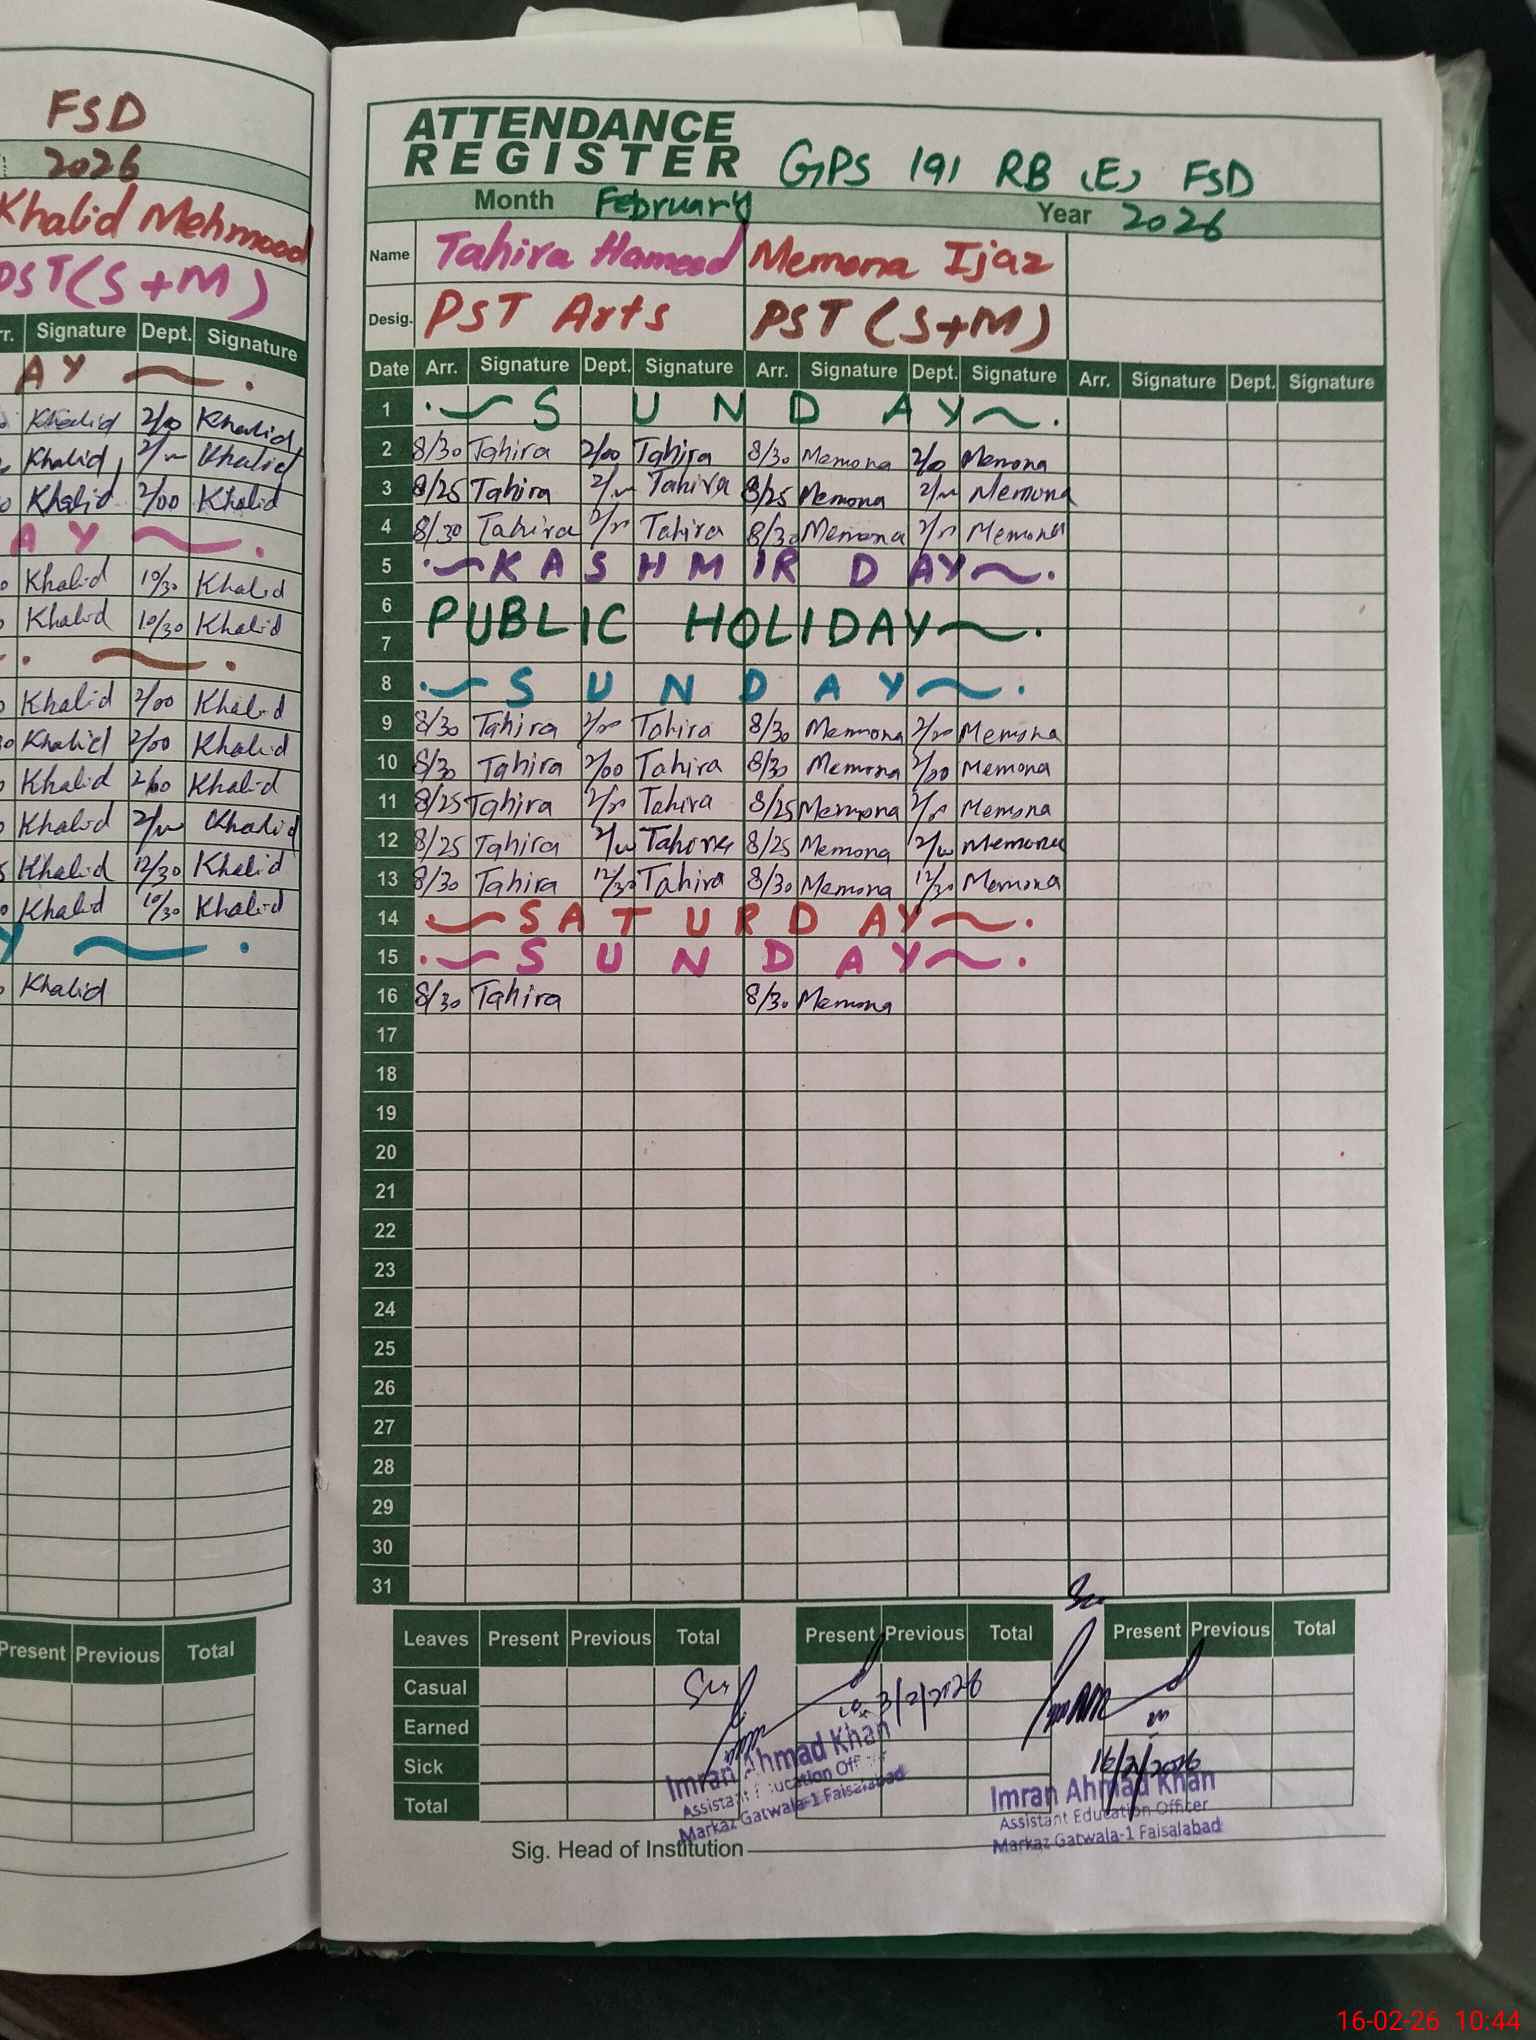 FSD
2026
Khalid Mehmood
PST (S+M)
Signature Dept. Signature
AY
Khalid 2/00 Khalid
Khalid Khalid
Khalid 2/00 Khalid
AY
Khalid 10/30 Khalid
Khalid 10/30 Khalid
Khalid 2/00 Khalid
Khalid 2/00 Khalid
Khalid 2/00 Khalid
Khalid Khalid
Khalid 12/30 Khalid
Khalid 10/30 Khalid
Y
Khalid
Present Previous Total
ATTENDANCE
REGISTER GPS 191 RB (E) FSD
Month February Year 2026
Name Tahira Hameed Memona Ijaz
Desig. PST Arts PST (S+M)
Date Arr. Signature Dept. Signature Arr. Signature Dept. Signature Arr. Signature Dept. Signature
1 SUNDAY
2 8/30 Tahira 2/00 Tahira 8/30 Memona 2/0 Memona
3 8/25 Tahira Tahira 8/25 Memona Memona
4 8/30 Tahira Tahira 8/30 Memona Memona
5 KASHMIR DAY
6
PUBLIC HOLIDAY
7
8 SUNDAY
9 8/30 Tahira Tahira 8/30 Memona Memona
10 8/30 Tahira 2/00 Tahira 8/30 Memona 2/00 Memona
11 8/25 Tahira Tahira 8/25 Memona Memona
12 8/25 Tahira Tahira 8/25 Memona Memona
13 8/30 Tahira 12/30 Tahira 8/30 Memona 12/30 Memona
14 SATURDAY
15 SUNDAY
16 8/30 Tahira 8/30 Memona
17
18
19
20
21
22
23
24
25
26
27
28
29
30
31
Leaves Present Previous Total Present Previous Total Present Previous Total
Casual
Earned
Sick
Total
3/2/2026
Imran Ahmad Khan
Assistant Education Officer
Markaz Gatwala-1 Faisalabad
16/2/2026
Imran Ahmad Khan
Assistant Education Officer
Markaz Gatwala-1 Faisalabad
Sig. Head of Institution
16-02-26 10:44